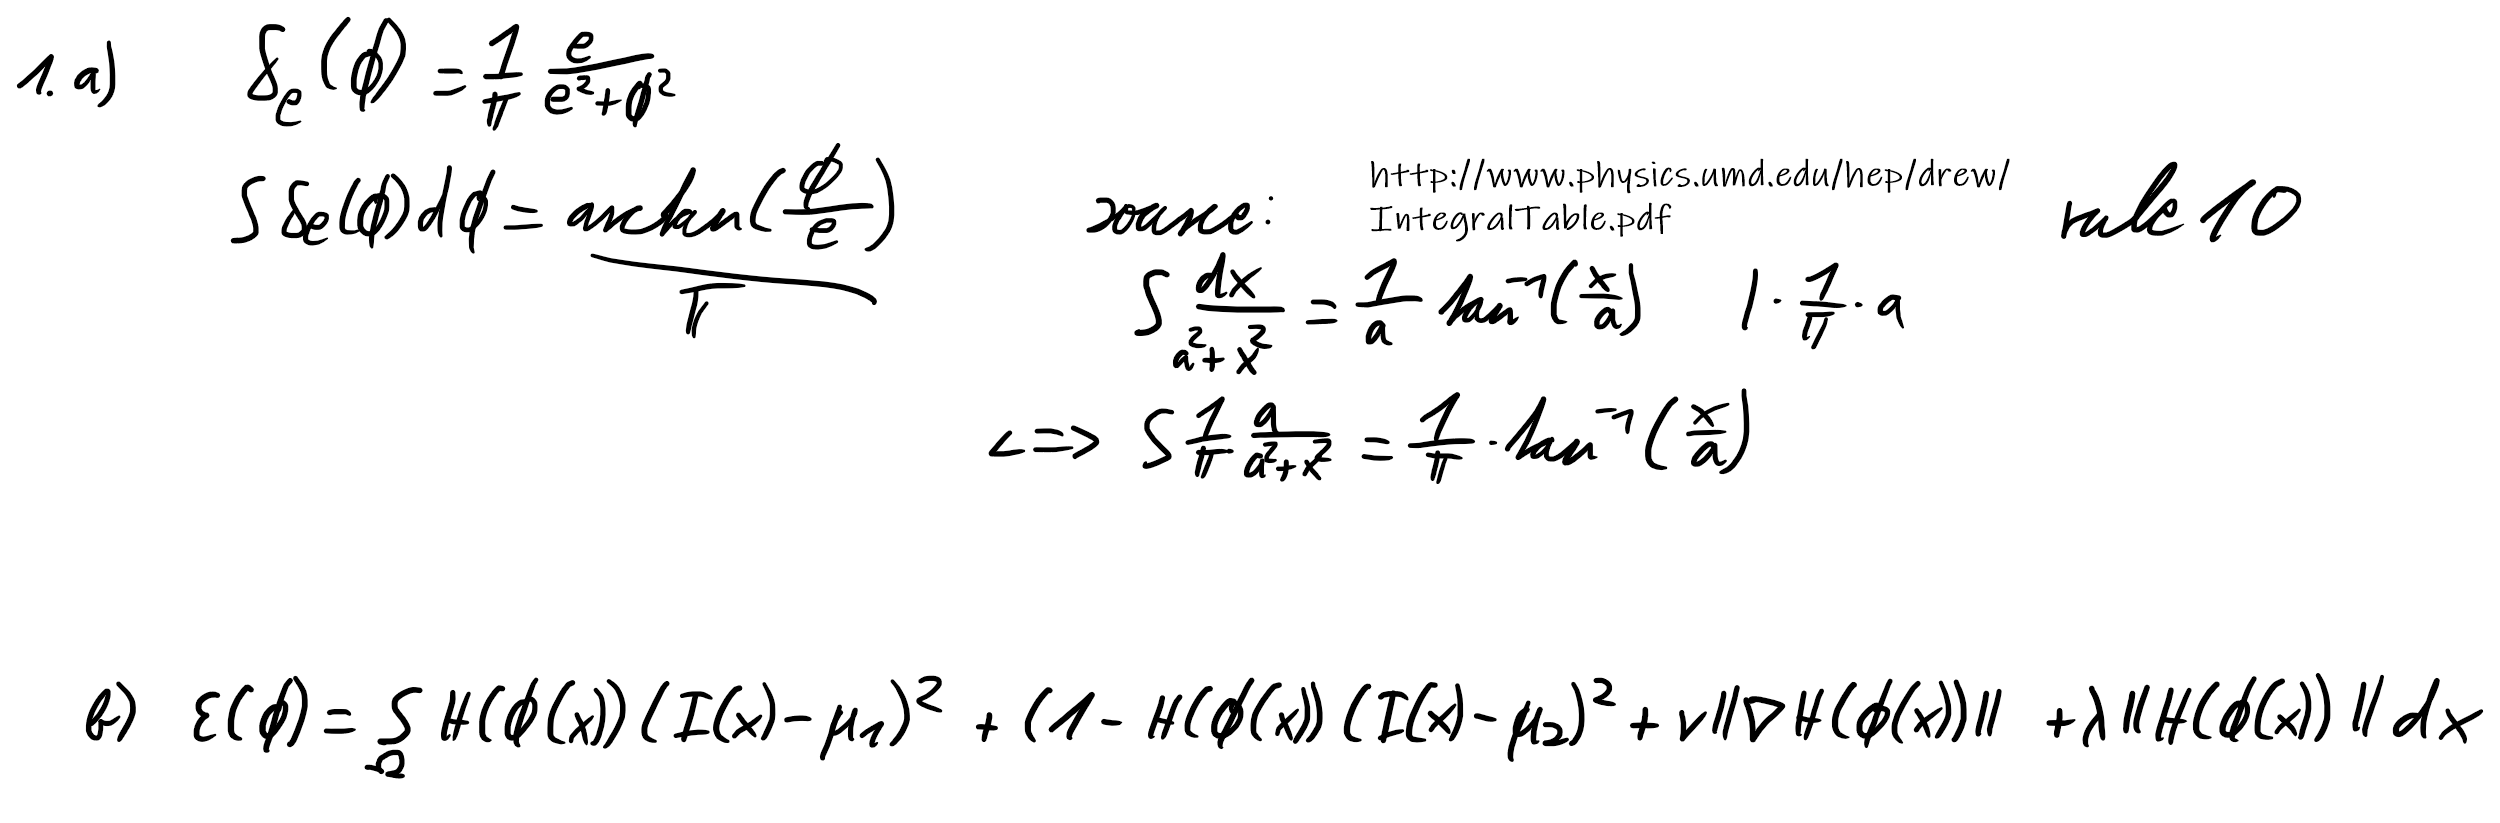 1. a) δ_e(φ) = 1/π e/(e²+φ²)
∫δ_e(φ)dφ = arctan(φ/e)/π source: http://www.physics.umd.edu/hep/drew/IntegralTable.pdf rule 10
∫ dx/(a²+x²) = 1/a tan⁻¹(x/a) | · 1/π · a
<=> ∫ 1/π a/(a²+x) = 1/π · tan⁻¹(x/a)
E(φ) = ∫_Ω H(φ(x))(I(x)-μ₁)² + (1-H(φ(x))(I(x)-μ₂)² + ν||∇H(φ(x)|| + λ||H(φ(x))||dx